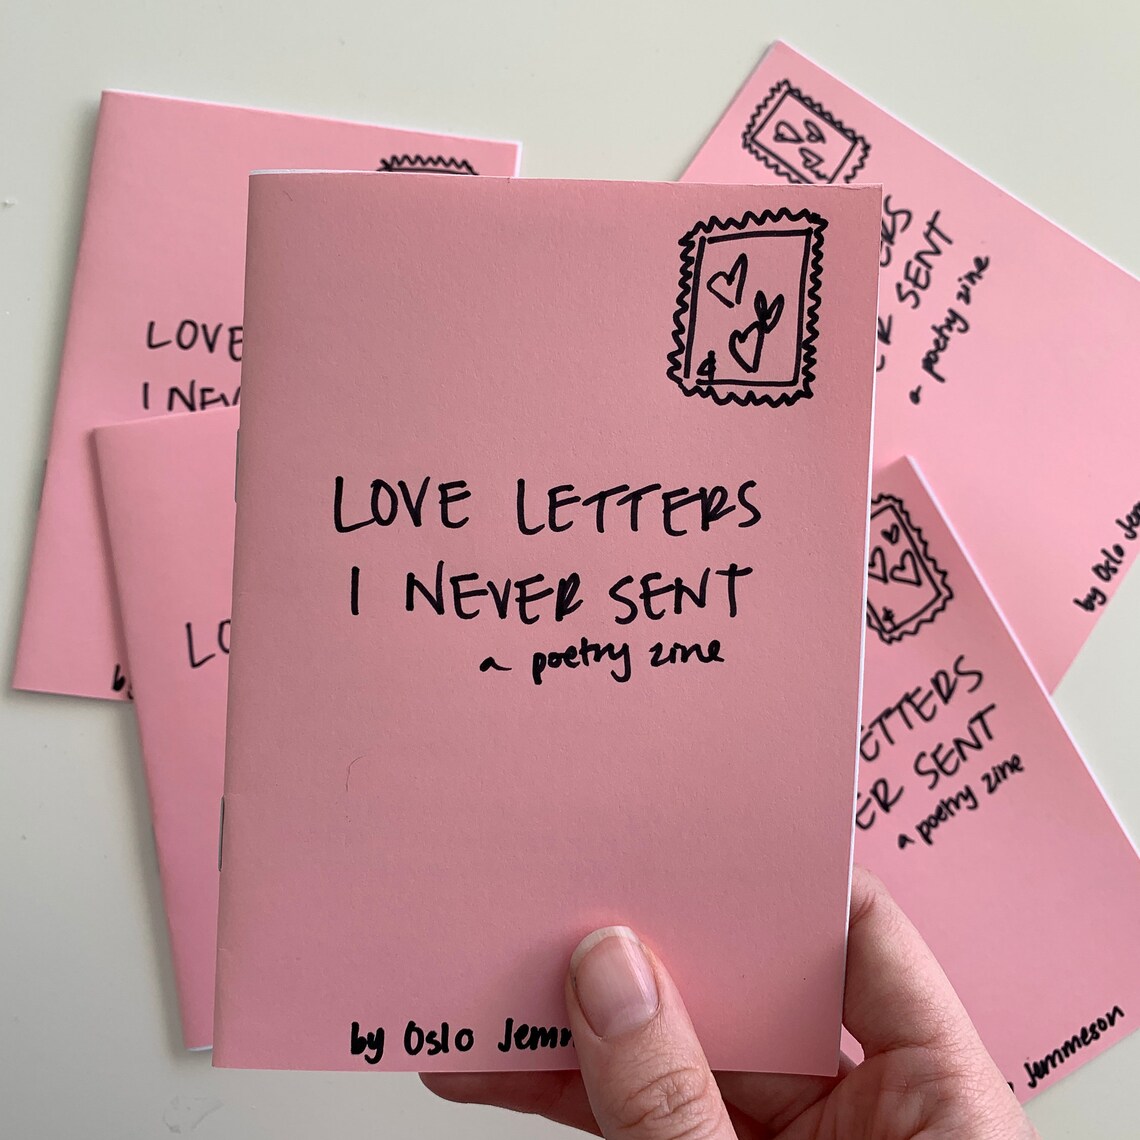 LOVE LETTERS
I NEVER SENT
a poetry zine
by Oslo Jem
LOVE
I NEV
by
LO
ERS
ER SENT
a poetry zine
by Oslo Jem
ETTERS
ER SENT
a poetry zine
Jemmeson